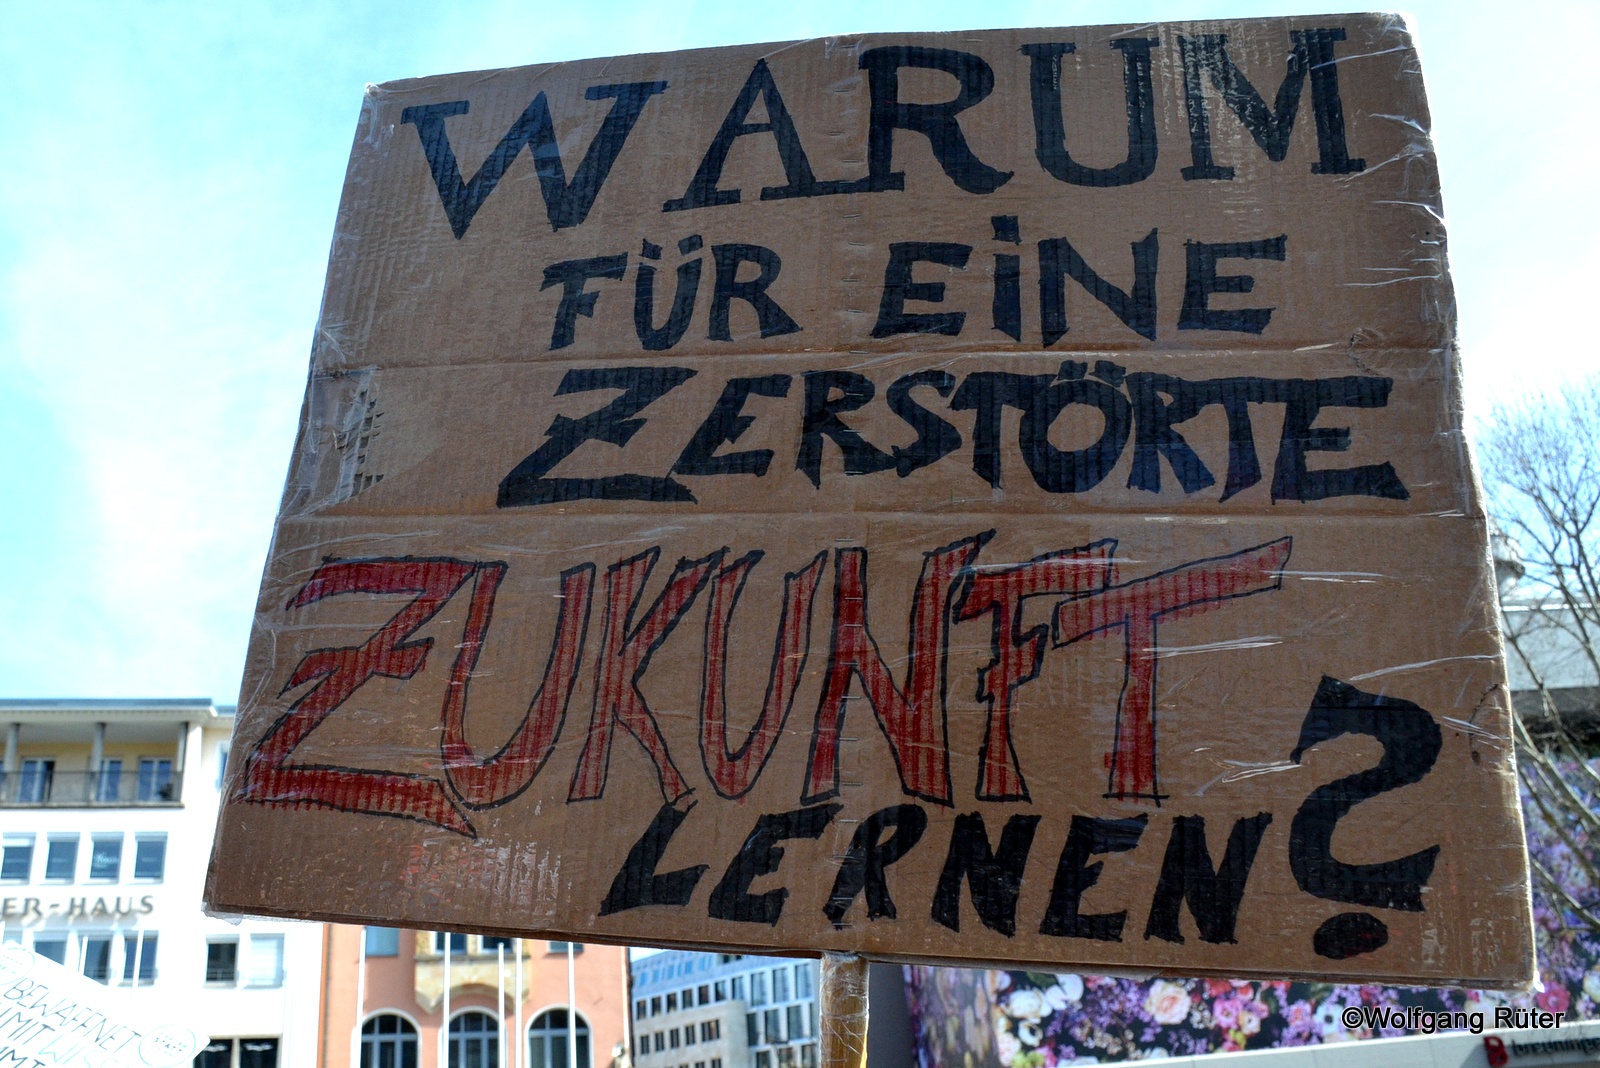 WARUM
FÜR EINE
ZERSTÖRTE
ZUKUNFT
LERNEN?
ER-HAUS
BEWAFFNET
MIT
©Wolfgang Rüter
breuninge